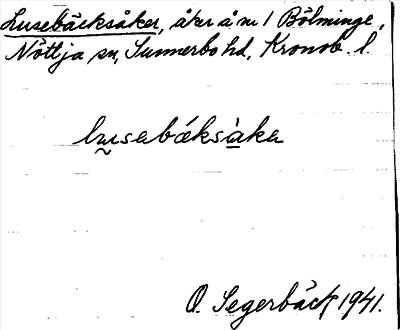 Lusebäcksåker, åker å nr 1 Bölminge,
Nöttja sn, Sunnerbo hd, Kronob. l.
lusabáksàkar
O. Segerbäck 1941.